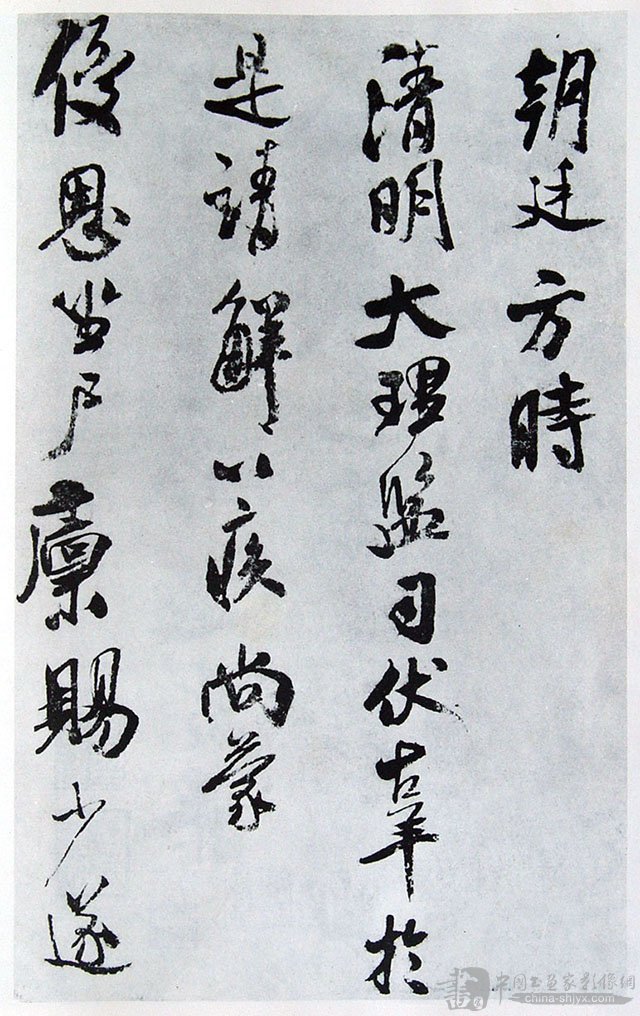 朝廷方時
清明大理監司伏辜於
是請解以疾尚蒙
優恩坐尸廩賜少遂
中国书画家影像網
china-shjyx.com